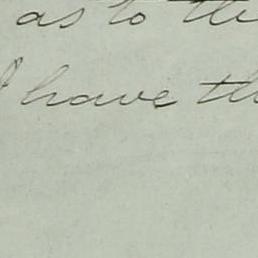 as to the
I have th